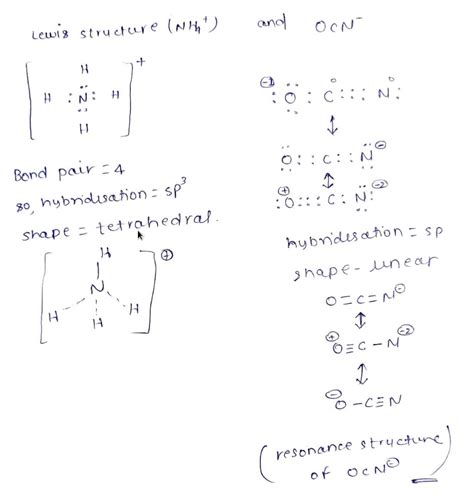 Lewis structure (NH4+) and OCN-
[ H
H :N: H
H ]+
Bond pair = 4
so, hybridisation = sp3
shape = tetrahedral.
[ H
N
H H H ]+
-1 :O : C ::: N: 0 0
↕
O :: C :: N -
↕
+ :O ::: C : N: -2
hybridisation = sp
shape - linear
O=C=N-
↕
+ O≡C-N -2
↕
- O-C≡N
(resonance structure
of OCN-)